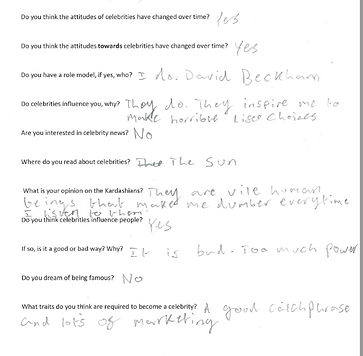 Do you think the attitudes of celebrities have changed over time? Yes
Do you think the attitudes towards celebrities have changed over time? Yes
Do you have a role model, if yes, who? I do. David Beckham
Do celebrities influence you, why? They do. They inspire me to
make horrible choices
Are you interested in celebrity news? No
Where do you read about celebrities? The Sun
What is your opinion on the Kardashians? They are vile human
beings that make me dumber everytime
I listen to them
Do you think celebrities influence people? Yes
If so, is it a good or bad way? Why? It is bad. Too much power
Do you dream of being famous? No
What traits do you think are required to become a celebrity? A good catchphrase
and lots of marketing